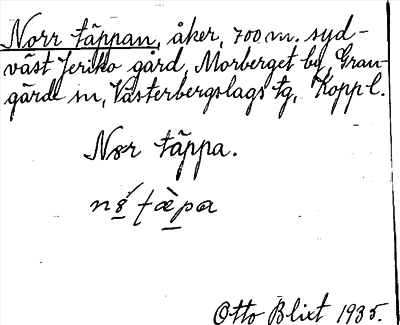 Norr täppan, åker, 700 m. syd-
väst Jeriko gård, Morberget by, Gran-
gärde sn, Västerbergslags tg, Koppl.
Nor täppa.
Otto Blixt 1935.